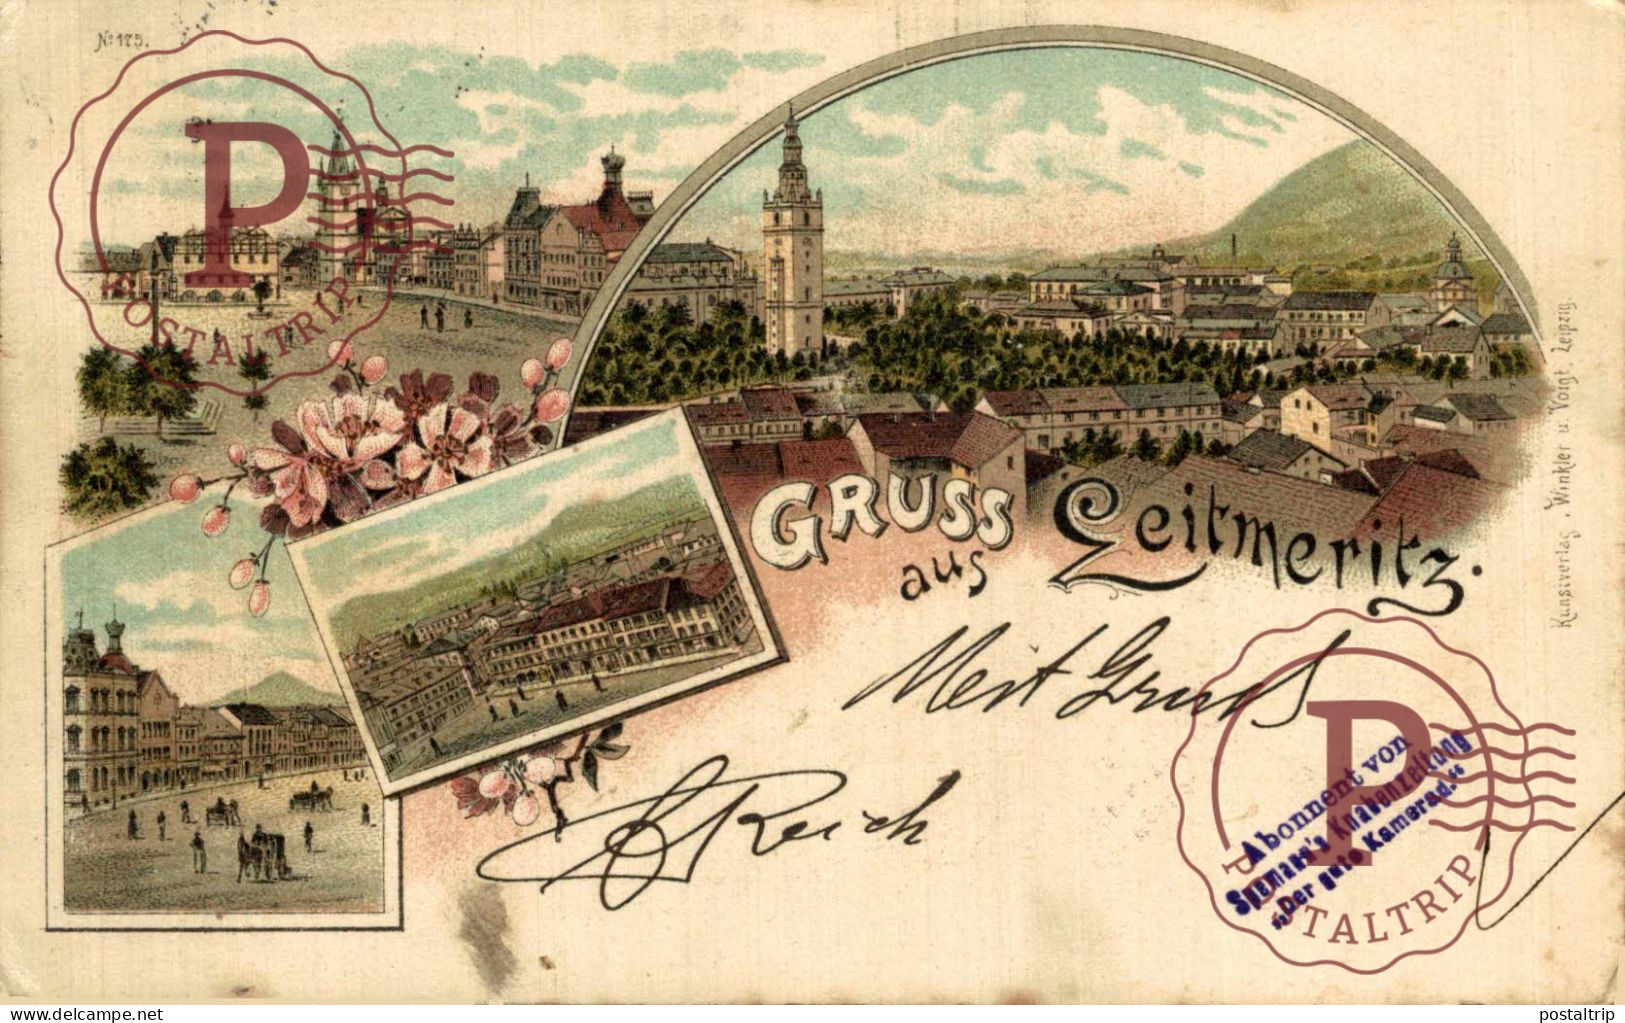 No 175.
POSTALTRIP
GRUSS
aus Leitmeritz.
Kunstverlag, Winkler u. Voigt, Leipzig.
Mit Gruss
Reich
Abonnent von
Spemann's Knabenzeitung
„Der gute Kamerad.“
POSTALTRIP
delcampe.net
postaltrip